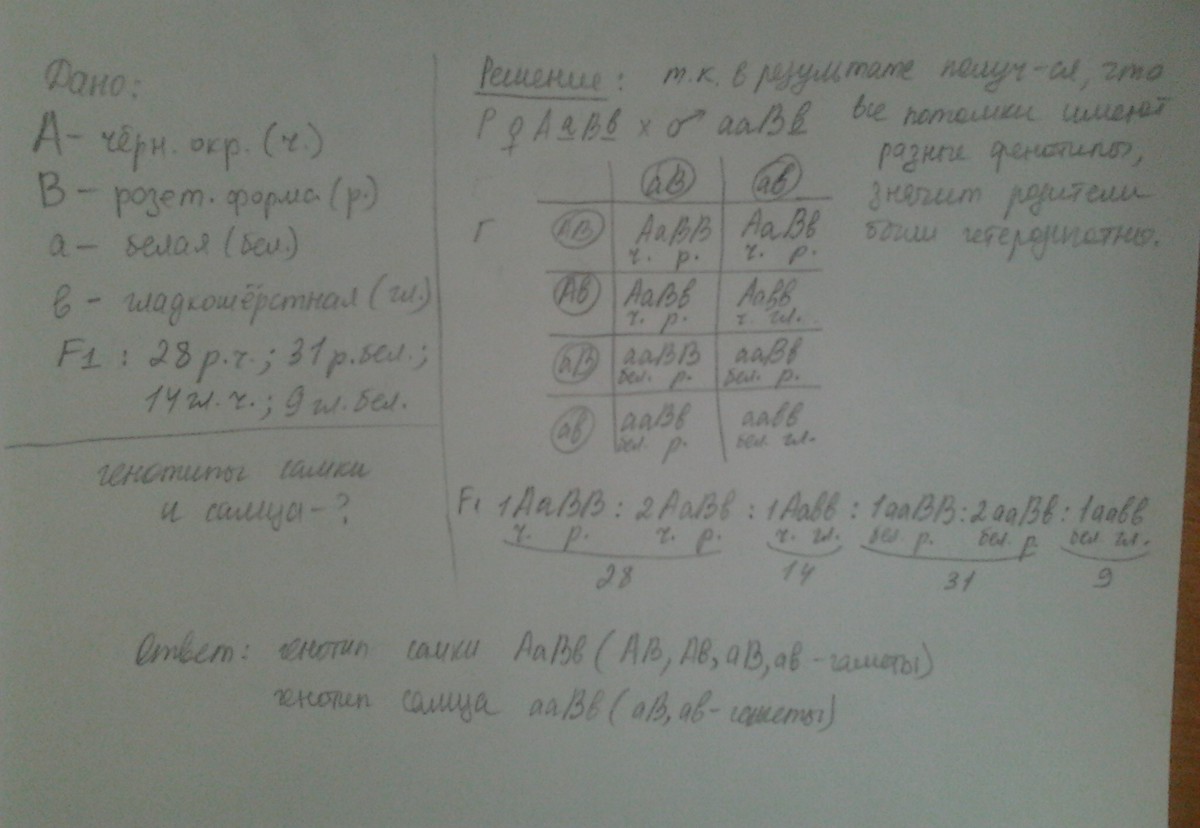 Дано:
А - чёрн. окр. (ч.)
В - розет. форма (р.)
а - белая (бел.)
в - гладкошёрстная (гл.)
F1 : 28 р.ч.; 31 р.бел.;
14 гл.ч.; 9 гл.бел.
генотипы самки
и самца - ?
Решение: т.к. в результате получ-ся, что
все потомки имеют
разные фенотипы,
значит родители
были гетерозиготны.
Р ♀ АаВв × ♂ ааВв
аВ ав
Г АВ АаВВ АаВв
ч. р. ч. р.
Ав АаВв Аавв
ч. р. ч. гл.
аВ ааВВ ааВв
бел. р. бел. р.
ав ааВв аавв
бел. р. бел. гл.
F1 1АаВВ : 2АаВв : 1Аавв : 1ааВВ : 2ааВв : 1аавв
ч. р. ч. р. ч. гл. бел. р. бел. р бел. гл.
28 14 31 9
Ответ: генотип самки АаВв (АВ, Ав, аВ, ав - гаметы)
генотип самца ааВв (аВ, ав - гаметы)